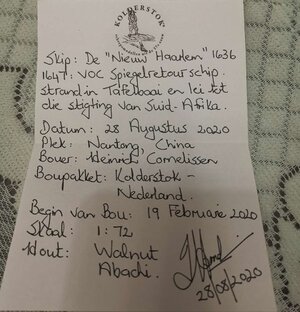 KOLDERSTOK
Skip: De "Nieuw Haarlem" 1636
1647: VOC Spiegelretourschip.
strand in Tafelbaai en lei tot
die stigting van Suid-Afrika.
Datum: 28 Augustus 2020
Plek: Nantong, China
Bouer: Heinrich Cornelissen
Boupakket: Kolderstok -
Nederland.
Begin van Bou: 19 Februarie 2020
Skaal: 1:72
Hout: Walnut
Abachi.
28/08/2020